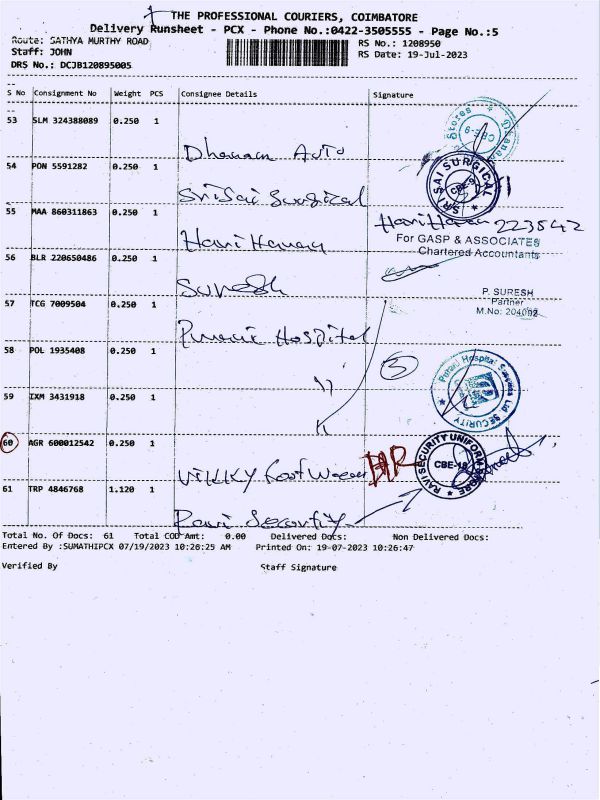 THE PROFESSIONAL COURIERS, COIMBATORE
Delivery Runsheet - PCX - Phone No.:0422-3505555 - Page No.:5
Route: SATHYA MURTHY ROAD
RS No.: 1208950
Staff: JOHN
RS Date: 19-Jul-2023
DRS No.: DCJB120895005
S No Consignment No Weight PCS Consignee Details Signature
53 SLM 324388089 0.250 1
Stores
CBE-9
54 PON 5591282 0.250 1
Sri Sai Surgical
SRI SAI SURGICAL
CBE-9
55 MAA 860311863 0.250 1
Hari Haran 223542
For GASP & ASSOCIATES
Chartered Accountants
56 BLR 220650486 0.250 1
Suresh
P. SURESH
Partner
M.No: 204002
57 TCG 7009504 0.250 1
Hospital
58 POL 1935408 0.250 1
5
"
59 IXM 3431918 0.250 1
Hospital
SECURITY
"
60 AGR 600012542 0.250 1
VIKKY Foot Wear
RAVI SECURITY UNIFORM STORE
CBE-18
61 TRP 4846768 1.120 1
Ravi Security
Total No. Of Docs: 61 Total COD Amt: 0.00 Delivered Docs: Non Delivered Docs:
Entered By :SUMATHIPCX 07/19/2023 10:26:25 AM Printed On: 19-07-2023 10:26:47
Verified By Staff Signature